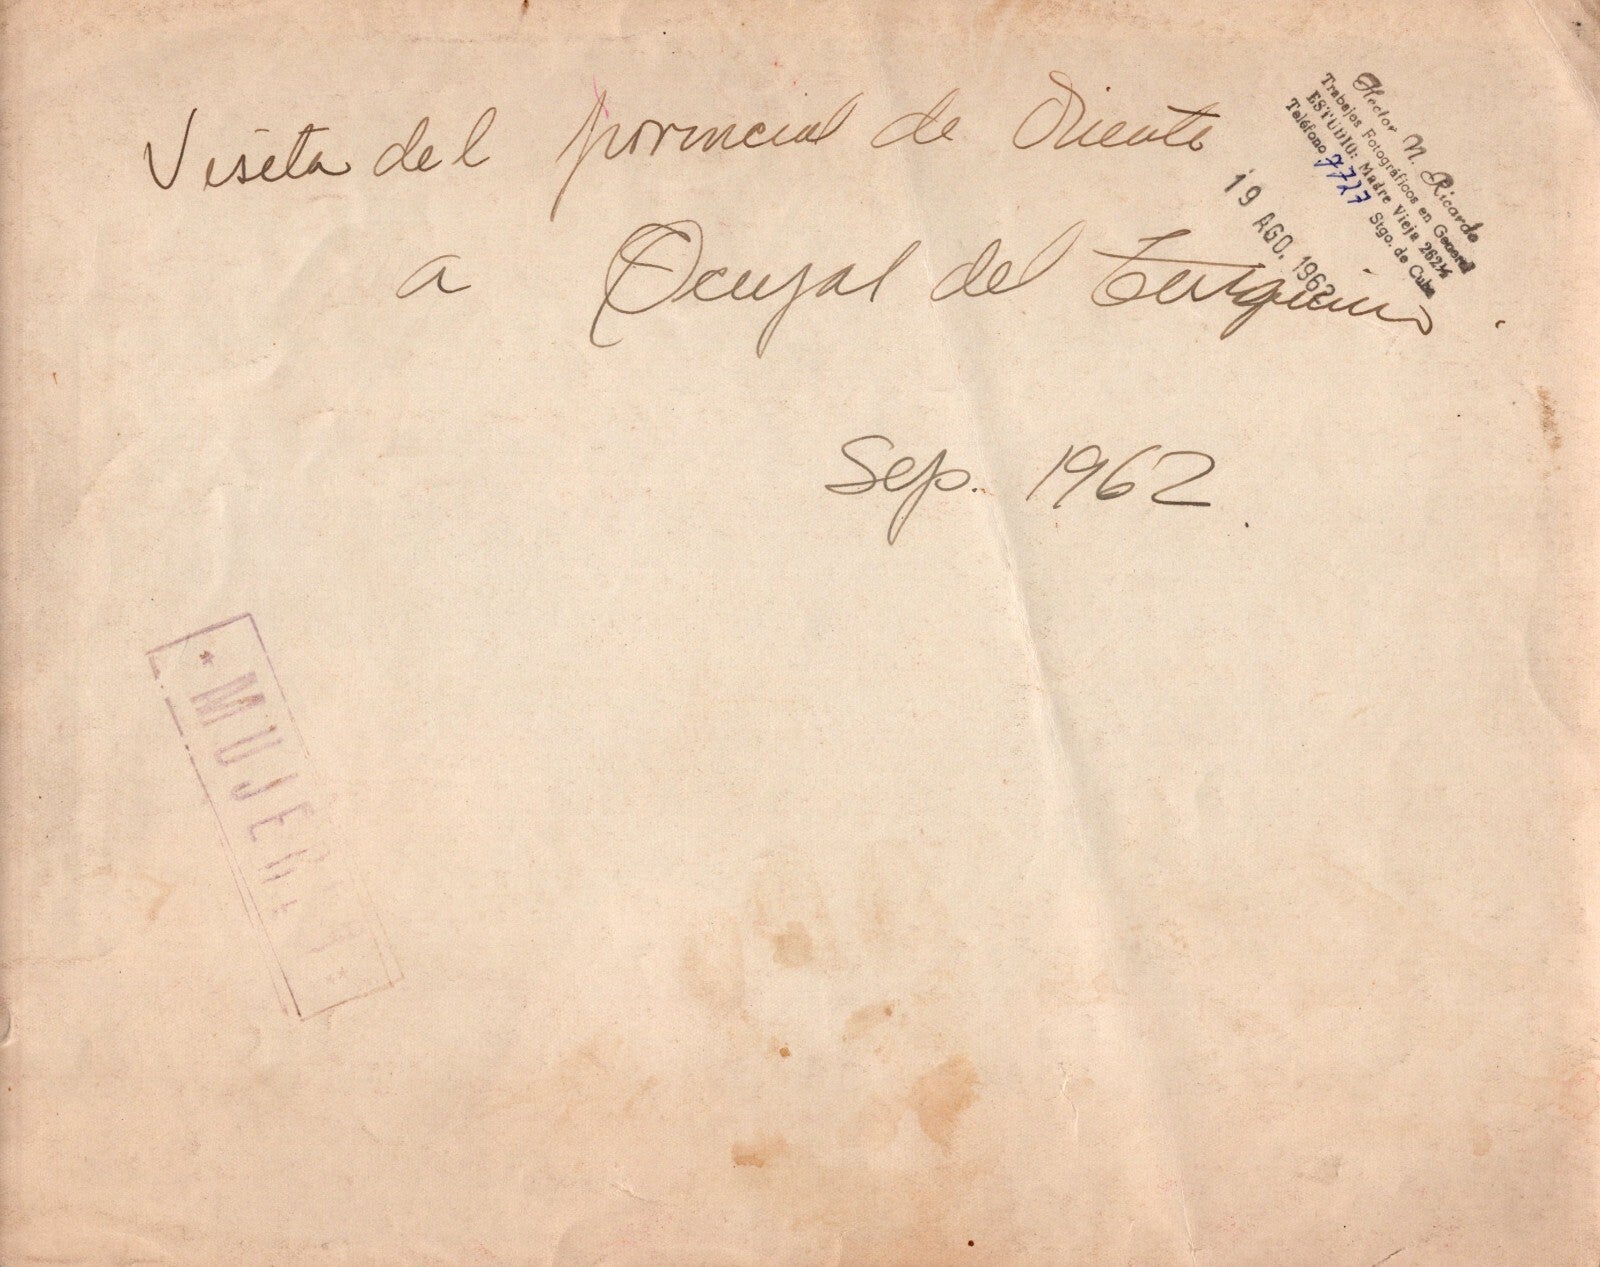 Visita del provincial de Oriente
a Ocujal del Turquino.
Sep. 1962
Hector N. Ricardo
Trabajos Fotográficos en General
ESTUDIO: Madre Vieja 262½
Teléfono 7727 Stgo. de Cuba
19 AGO. 1962
* MUJERES *